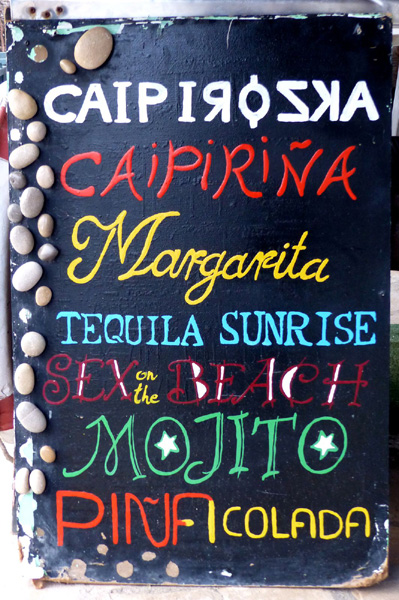 CAIPIROZKA
CAiPiRiÑA
Margarita
TEQUILA SUNRISE
SEX on the BEACH
MOJITO
PIÑA COLADA